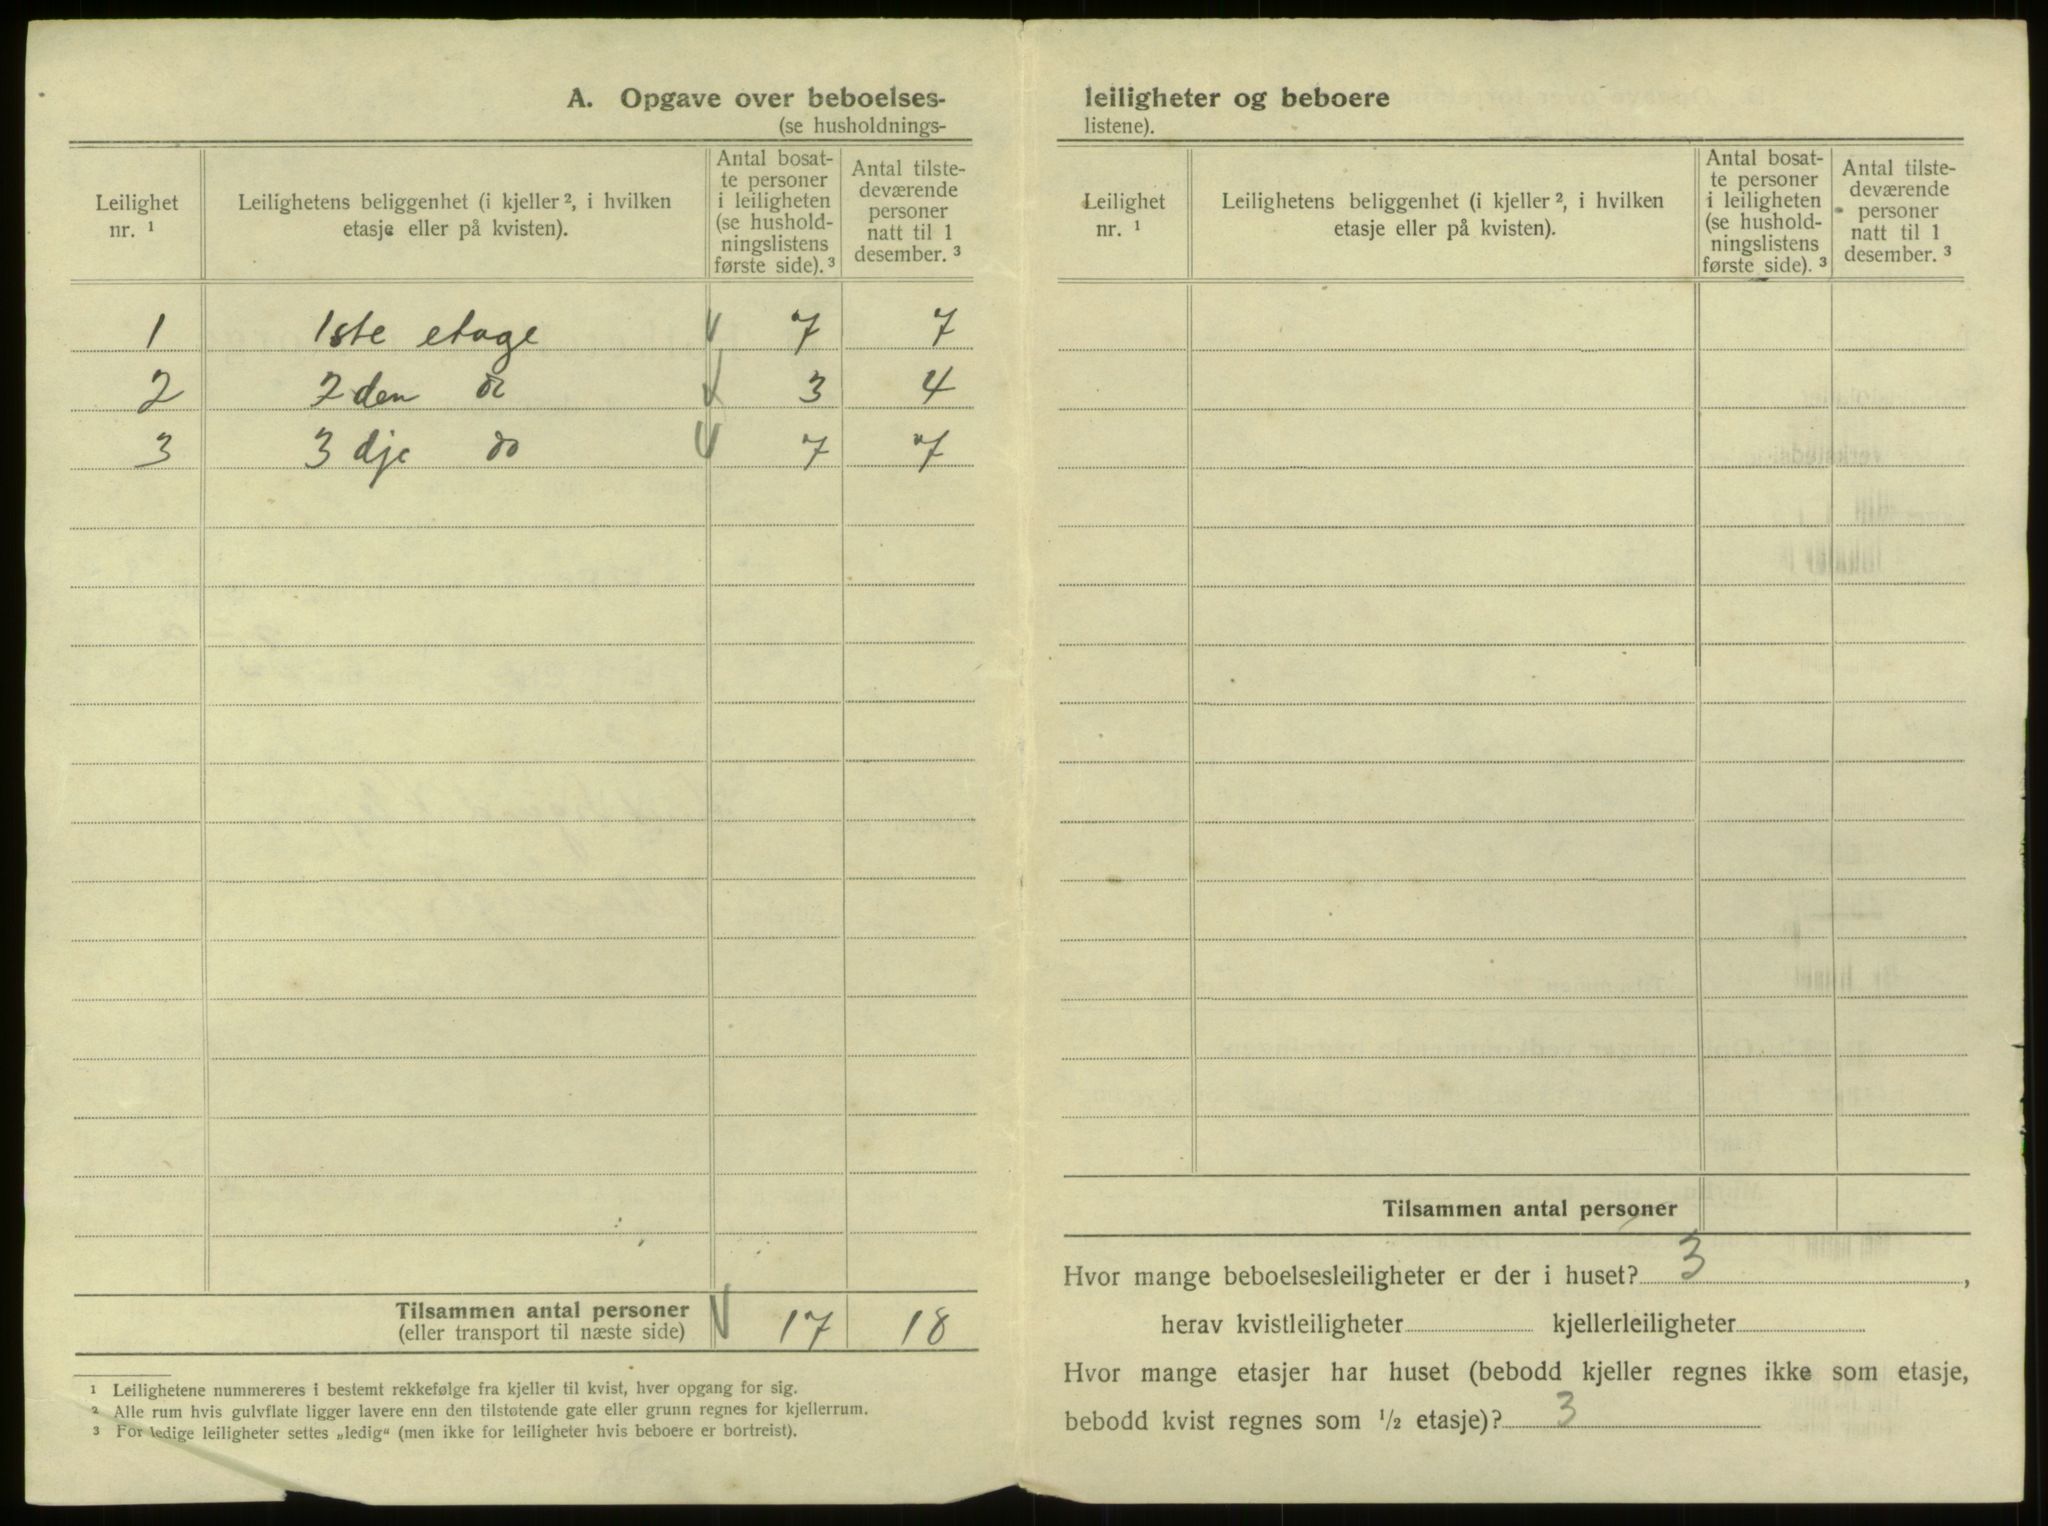 A. Opgave over beboelses-
(se husholdnings-
Leilighet
nr. 1
Leilighetens beliggenhet (i kjeller 2, i hvilken
etasje eller på kvisten).
Antal bosat-
te personer
i leiligheten
(se hushold-
ningslistens
første side). 3
Antal tilste-
deværende
personer
natt til 1
desember. 3
1 1ste etage 7 7
2 2den do 3 4
3 3dje do 7 7
Tilsammen antal personer 17 18
(eller transport til næste side)
1 Leilighetene nummereres i bestemt rekkefølge fra kjeller til kvist, hver opgang for sig.
2 Alle rum hvis gulvflate ligger lavere enn den tilstøtende gate eller grunn regnes for kjellerrum.
3 For ledige leiligheter settes „ledig“ (men ikke for leiligheter hvis beboere er bortreist).
leiligheter og beboere
listene).
Leilighet
nr. 1
Leilighetens beliggenhet (i kjeller 2, i hvilken
etasje eller på kvisten).
Antal bosat-
te personer
i leiligheten
(se hushold-
ningslistens
første side). 3
Antal tilste-
deværende
personer
natt til 1
desember. 3
Tilsammen antal personer
Hvor mange beboelsesleiligheter er der i huset? 3,
herav kvistleiligheter kjellerleiligheter
Hvor mange etasjer har huset (bebodd kjeller regnes ikke som etasje,
bebodd kvist regnes som 1/2 etasje)? 3